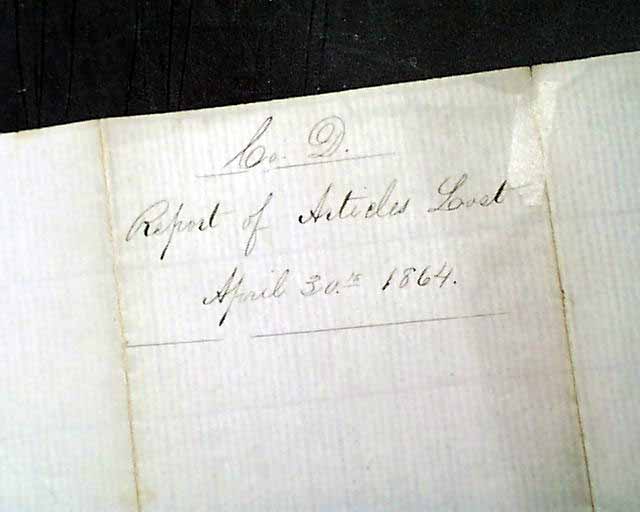 Co. D.
Report of Articles Lost
April 30.th 1864.